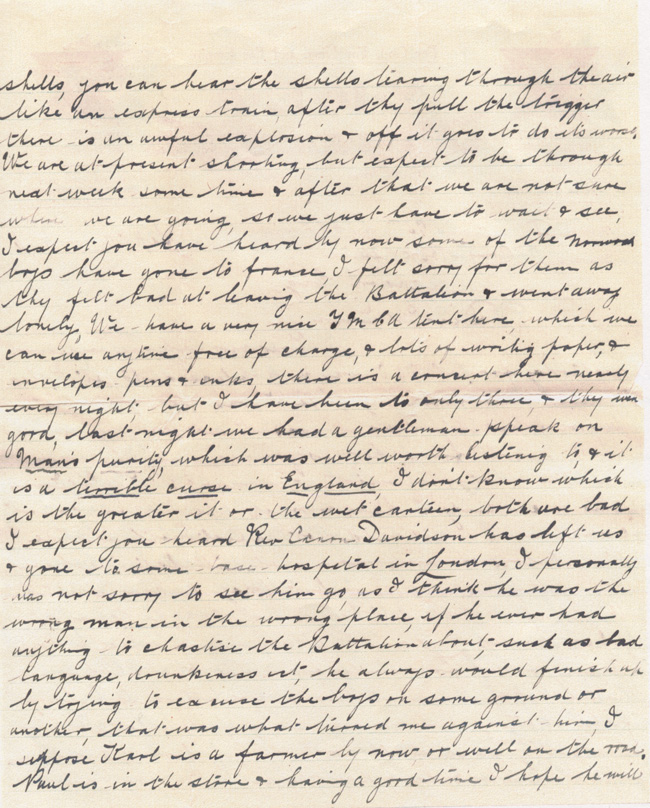 shells, you can hear the shells tearing through the air
like an express train, after thy pull the trigger
there is an awful explosion & off it goes to do its worse.
We are at present shooting, but expect to be through
next week some time & after that we are not sure
where we are going, so we just have to wait & see,
I expect you have heard by now some of the Norwood
boys have gone to france, I felt sorry for them as
thy felt bad at leavig the Battalion & went away
lonely, We have a very nice YMCA tent here, which we
can use anytime free of charge, & lots of writig paper, &
envelopes pens & inks, there is a concert here nearly
every night, but I have been to only three, & they were
good, last night we had a gentleman speak on
Man's purity, which was well worth listenig to, & it
is a terrible curse in England, I don't know which
is the greater it or the wet canteen, both are bad
I expect you heard Rev Canon Davidson has left us
& gone to some base hospital in London, I personally
was not sorry to see him go, as I think he was the
wrong man in the wrong place, if he ever had
anything to chastise the Battalion about, such as bad
language, drunkeness ect, he always would finish up
by trying to excuse the boys on some ground or
another, that was what turned me against him, I
suppose Karl is a farmer by now or well on the road.
Paul is in the store & having a good time I hope he will